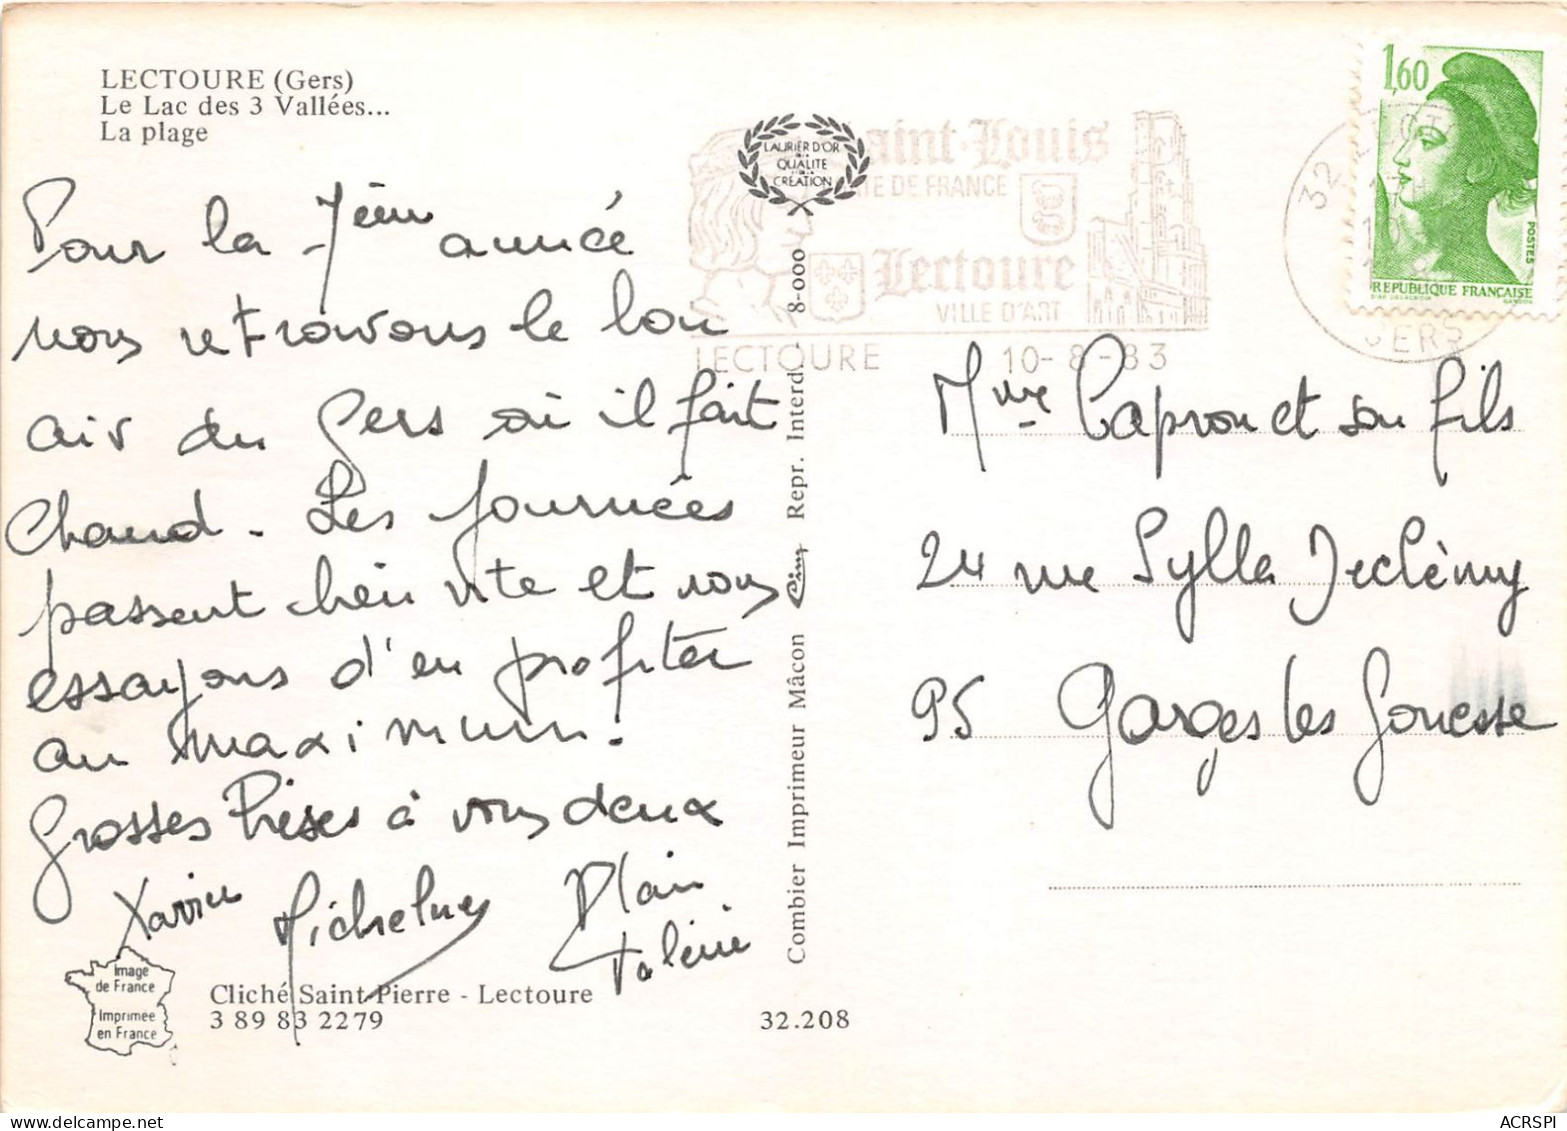 LECTOURE (Gers)
Le Lac des 3 Vallées...
La plage
Pour la 7ème année
nous retrouvons le bon
air du Gers où il fait
Chaud. Les journées
passent bien vite et nous
essayons d'en profiter
au maximum.
Grosses Bises à vous deux
Xavier Alain
Valérie
Image
de France
Imprimée
en France
Cliché Saint-Pierre - Lectoure
3 89 83 2279
32.208
LAURIER D'OR
DE LA
QUALITE
DE LA
CRÉATION
Combier Imprimeur Mâcon Cim Repr. Interd. 8-000
Saint-Louis
DE FRANCE
Lectoure
VILLE D'ART
LECTOURE 10-8-83
32
17H
10
GERS
1,60
POSTES
REPUBLIQUE FRANÇAISE
GANDON
Mme Capron et son fils
24 rue Sylla
95 Garges les Gonesse
ACRSPI